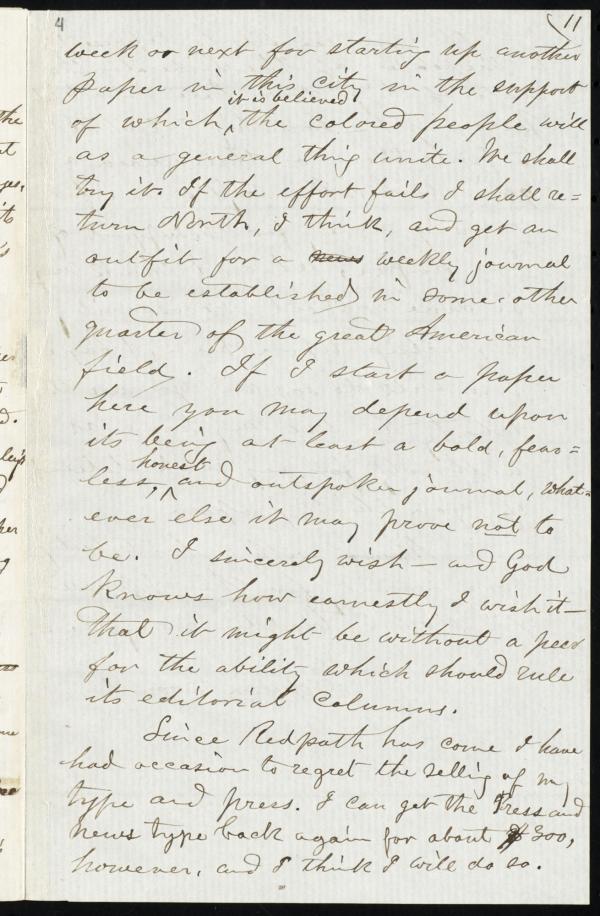 4
11
week or next for starting up another
paper in this city in the support
it is believed
of which, the colored people will
as a general thing unite. We shall
try it. If the effort fails I shall re=
turn North, I think, and get an
outfit for a news weekly journal
to be established in some other
quarter of the great American
field. If I start a paper
here you may depend upon
its being at least a bold, fear=
honest
less, and outspoken journal, what=
ever else it may prove not to
be. I sincerely wish — and God
knows how earnestly I wish it —
that it might be without a peer
for the ability which should rule
its editorial columns.
Since Redpath has come I have
had occasion to regret the selling of my
type and press. I can get the Press and
news type back again for about $300,
however, and I think I will do so.